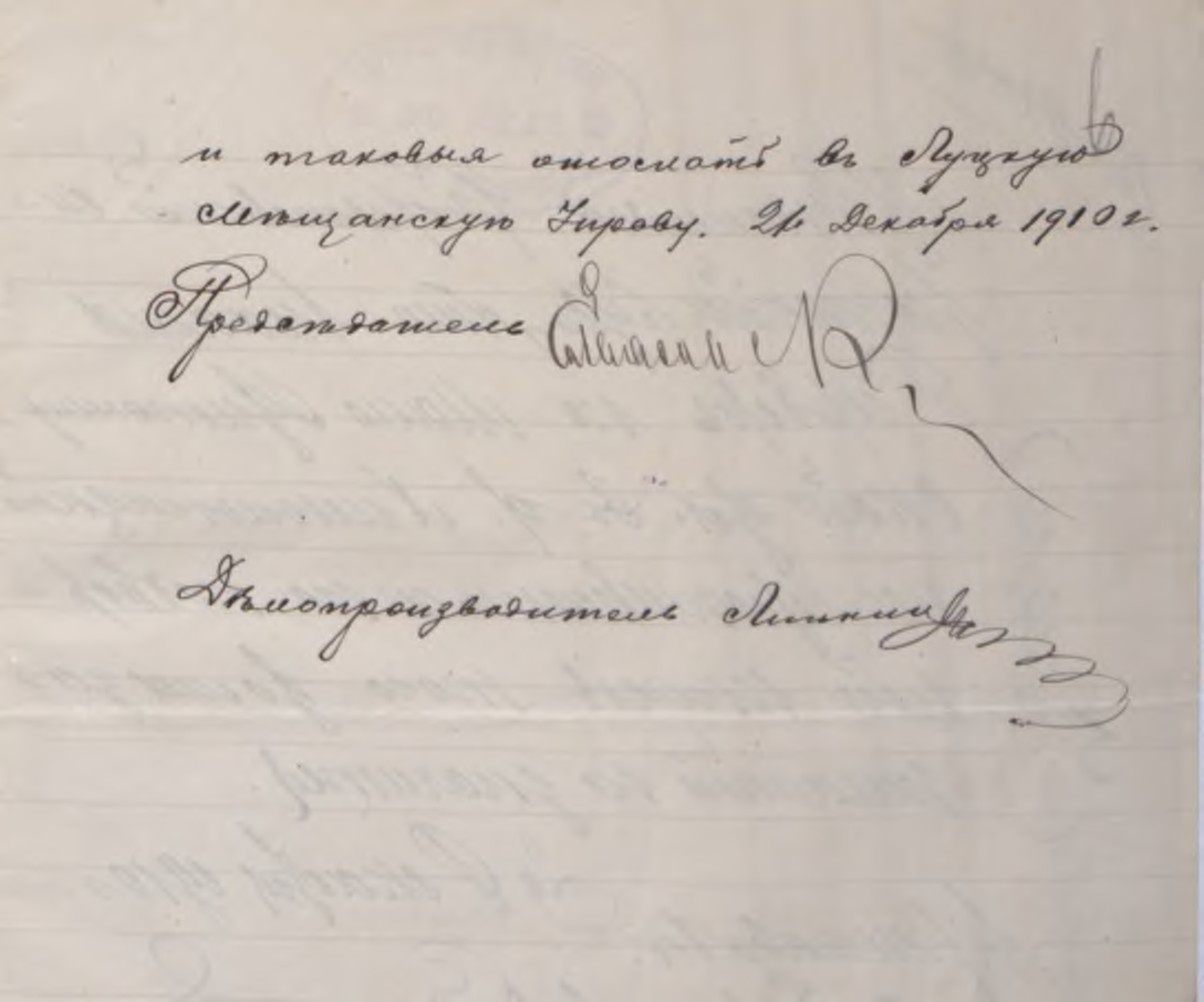 и таковыя отослать въ Луцкую
Мѣщанскую Управу. 21 Декабря 1910 г.
Предсѣдатель
Дѣлопроизводитель